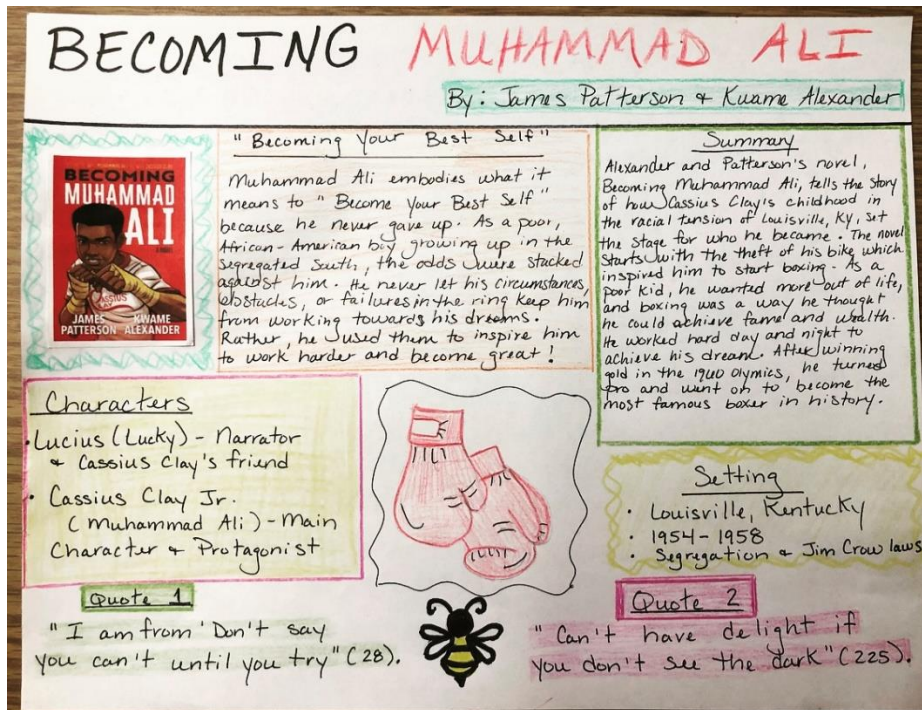 BECOMING MUHAMMAD ALI
By: James Patterson & Kwame Alexander
BECOMING
MUHAMMAD
ALI
A NOVEL
CASSIUS
CLAY
JAMES PATTERSON
KWAME ALEXANDER
"Becoming Your Best Self"
Muhammad Ali embodies what it
means to "Become Your Best Self"
because he never gave up. As a poor,
African-American boy growing up in the
segregated South, the odds were stacked
against him. He never let his circumstances,
obstacles, or failures in the ring keep him
from working towards his dreams.
Rather, he used them to inspire him
to work harder and become great!
Summary
Alexander and Patterson's novel,
Becoming Muhammad Ali, tells the story
of how Cassius Clay's childhood in
the racial tension of Louisville, Ky, set
the stage for who he became. The novel
starts with the theft of his bike which
inspired him to start boxing. As a
poor kid, he wanted more out of life,
and boxing was a way he thought
he could achieve fame and wealth.
He worked hard day and night to
achieve his dream. After winning
gold in the 1960 Olymics, he turned
pro and went on to become the
most famous boxer in history.
Characters
• Lucius (Lucky) - Narrator
& Cassius Clay's friend
• Cassius Clay Jr.
(Muhammad Ali) - Main
Character & Protagonist
Setting
• Louisville, Kentucky
• 1954-1958
• Segregation & Jim Crow laws
Quote 1
"I am from 'Don't say
you can't until you try" (28).
Quote 2
"Can't have delight if
you don't see the dark" (225).